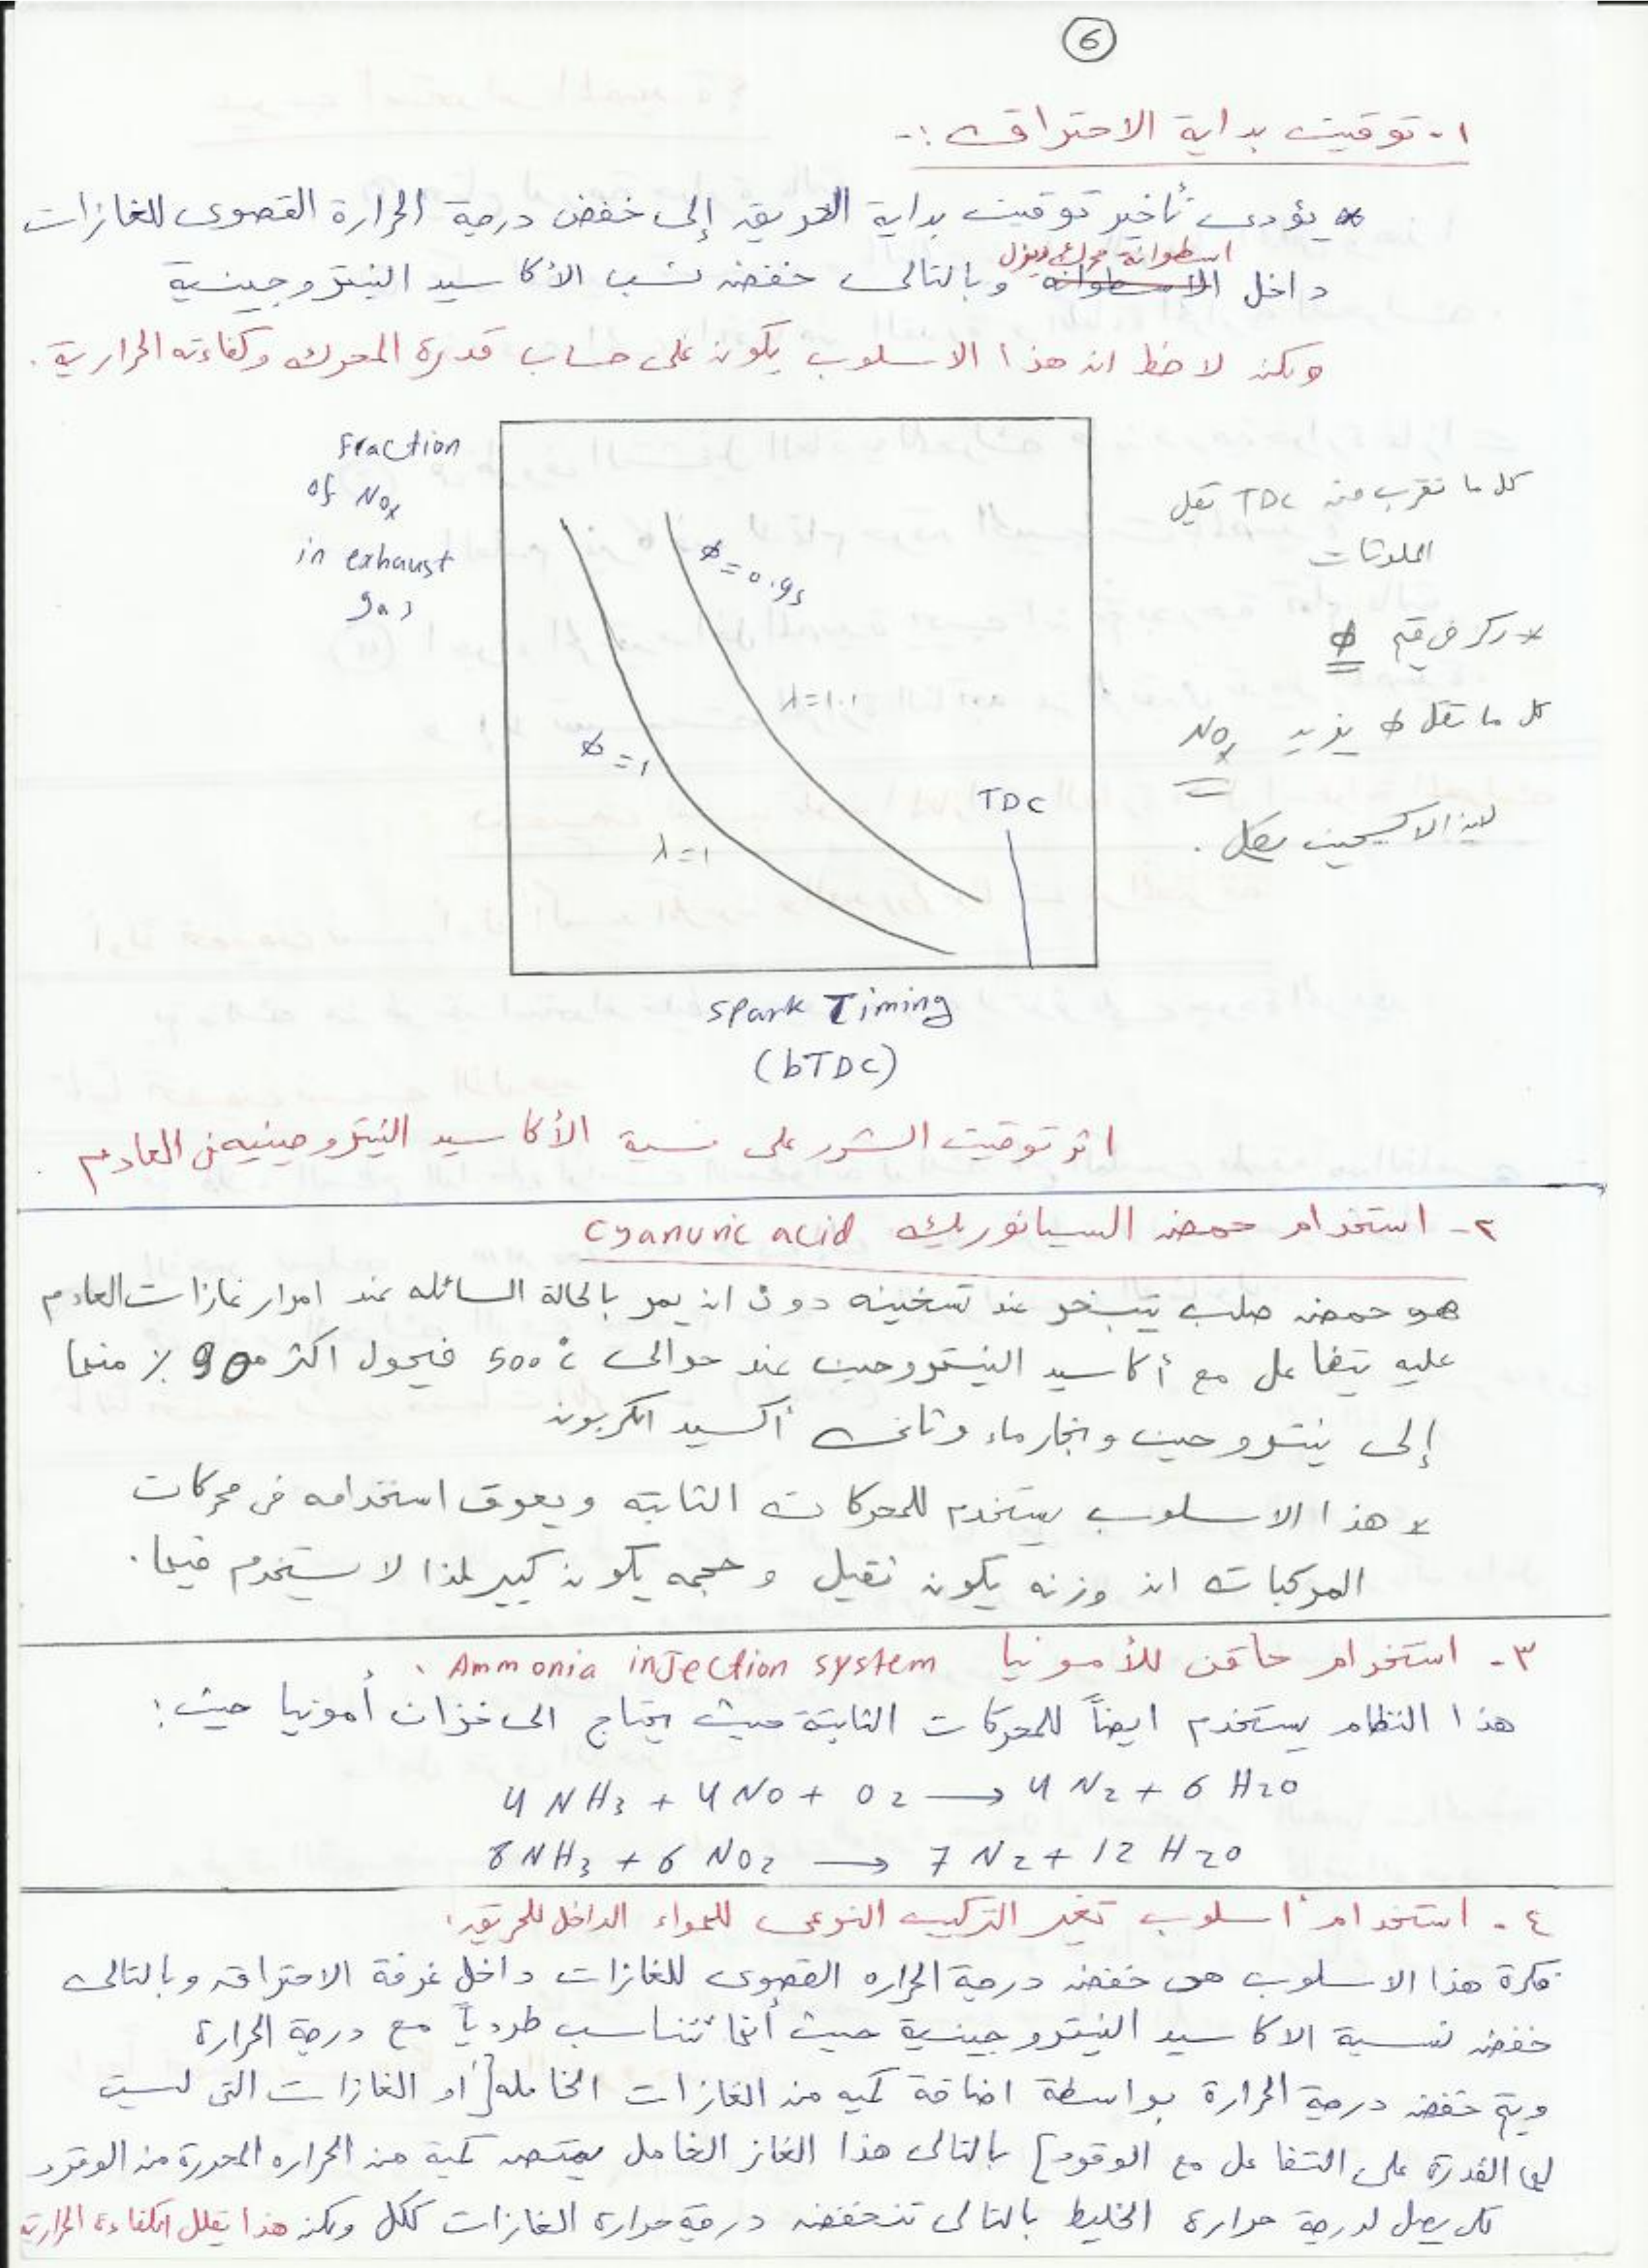 6
١- توقيت بداية الاحتراق :-
* يؤدى تأخير توقيت بداية الحريق إلى خفض درجة الحرارة القصوى للغازات
اسطوانة محرك ديزل
داخل الاسطوانة وبالتالى خفض نسب الأكاسيد النيتروجينية
ولكن لاحظ ان هذا الاسلوب يكون على حساب قدرة المحرك وكفاءته الحرارية .
Fraction
of NOx
in exhaust
gas
كل ما نقرب من TDC تقل
الملوثات
* ركز فى قيم ϕ
كل ما تقل ϕ يزيد NOx
لان الاكسجين
ϕ = 0.95
λ = 1.1
ϕ = 1
λ = 1
TDC
Spark Timing
(bTDC)
اثر توقيت الشرر على نسبة الأكاسيد النيتروجينيه فى العادم .
٢- استخدام حمض السيانوريك Cyanuric acid
هو حمض صلب يتبخر عند تسخينه دون ان يمر بالحالة السائله عند امرار غازات العادم
عليه يتفاعل مع أكاسيد النيتروجين عند حوالى 500 °C فيحول اكثر من 90 % منها
إلى نيتروجين وبخار ماء وثانى أكسيد الكربون
* هذا الاسلوب يستخدم للمحركات الثابته ويعوق استخدامه فى محركات
المركبات ان وزنه يكون ثقيل وحجمه يكون كبير لهذا لا يستخدم فيها .
٣- استخدام حاقن للأمونيا Ammonia injection system .
هذا النظام يستخدم ايضاً للمحركات الثابتة حيث يحتاج الى خزان أمونيا حيث :
4 NH3 + 4 NO + O2 → 4 N2 + 6 H2O
8 NH3 + 6 NO2 → 7 N2 + 12 H2O
٤- استخدام أسلوب تغير التركيب النوعى للهواء الداخل للحريق .
فكرة هذا الاسلوب هى خفض درجة الحراره القصوى للغازات داخل غرفة الاحتراق وبالتالى
خفض نسبة الاكاسيد النيتروجينية حيث أنها تتناسب طردياً مع درجة الحرارة
ويتم خفض درجة الحرارة بواسطة اضافة كميه من الغازات الخامله [ أو الغازات التى ليست
لها القدرة على التفاعل مع الوقود ] بالتالى هذا الغاز الخامل يمتص كمية من الحراره المحررة من الوقود
لكى يصل لدرجة حرارة الخليط بالتالى تنخفض درجة حرارة الغازات ككل ولكن هذا يقلل الكفاءة الحرارية